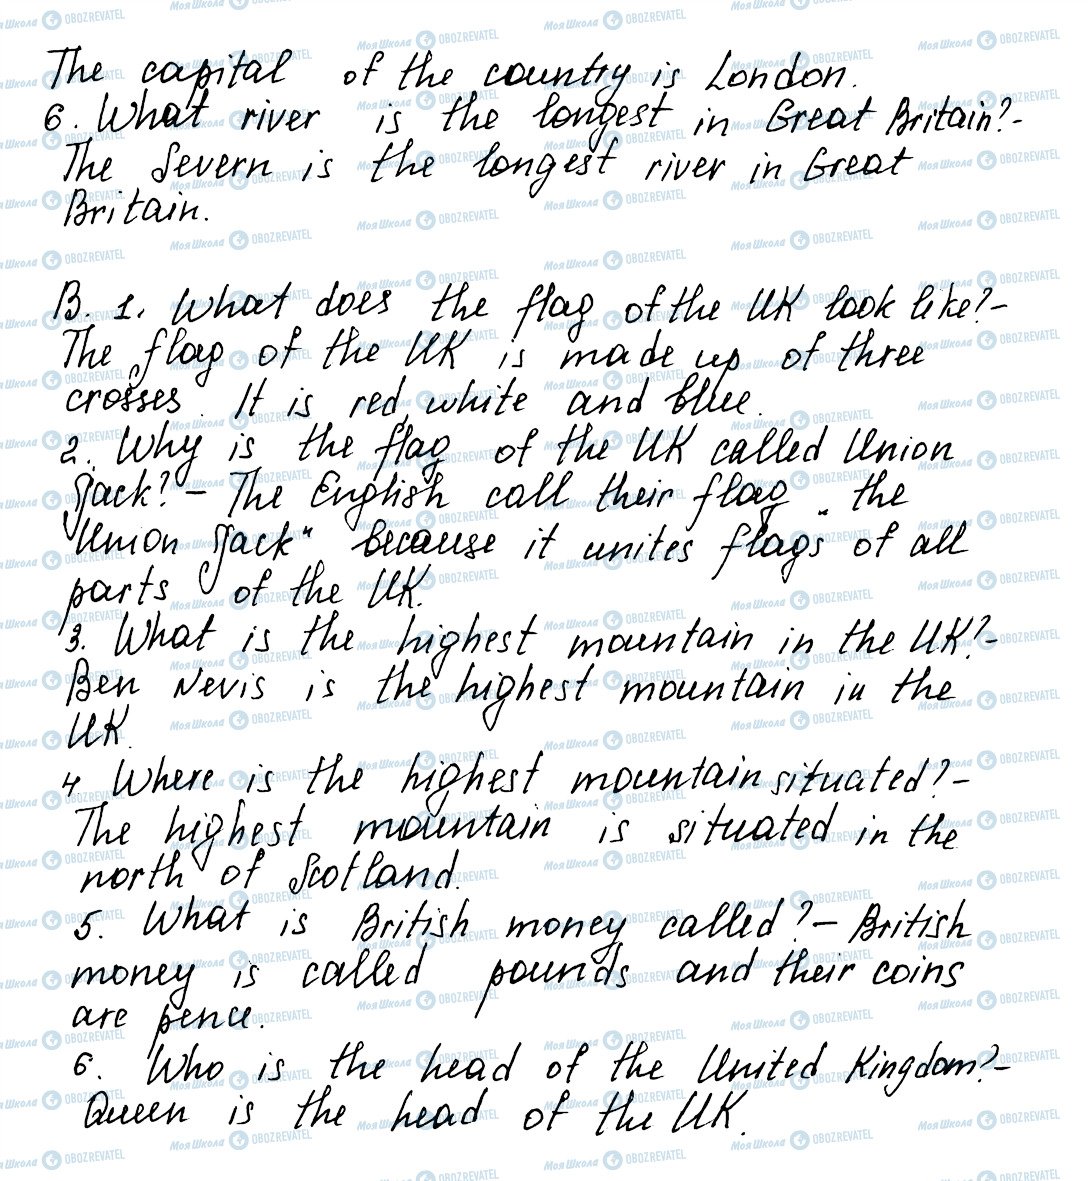 The capital of the country is London.
6. What river is the longest in Great Britain? -
The Severn is the longest river in Great
Britain.
B. 1. What does the flag of the UK look like? -
The flag of the UK is made up of three
crosses. It is red white and blue.
2. Why is the flag of the UK called Union
Jack? - The English call their flag "the
Union Jack" because it unites flags of all
parts of the UK.
3. What is the highest mountain in the UK? -
Ben Nevis is the highest mountain in the
UK.
4 Where is the highest mountain situated? -
The highest mountain is situated in the
north of Scotland.
5. What is British money called? - British
money is called pounds and their coins
are pence.
6. Who is the head of the United Kingdom? -
Queen is the head of the UK.